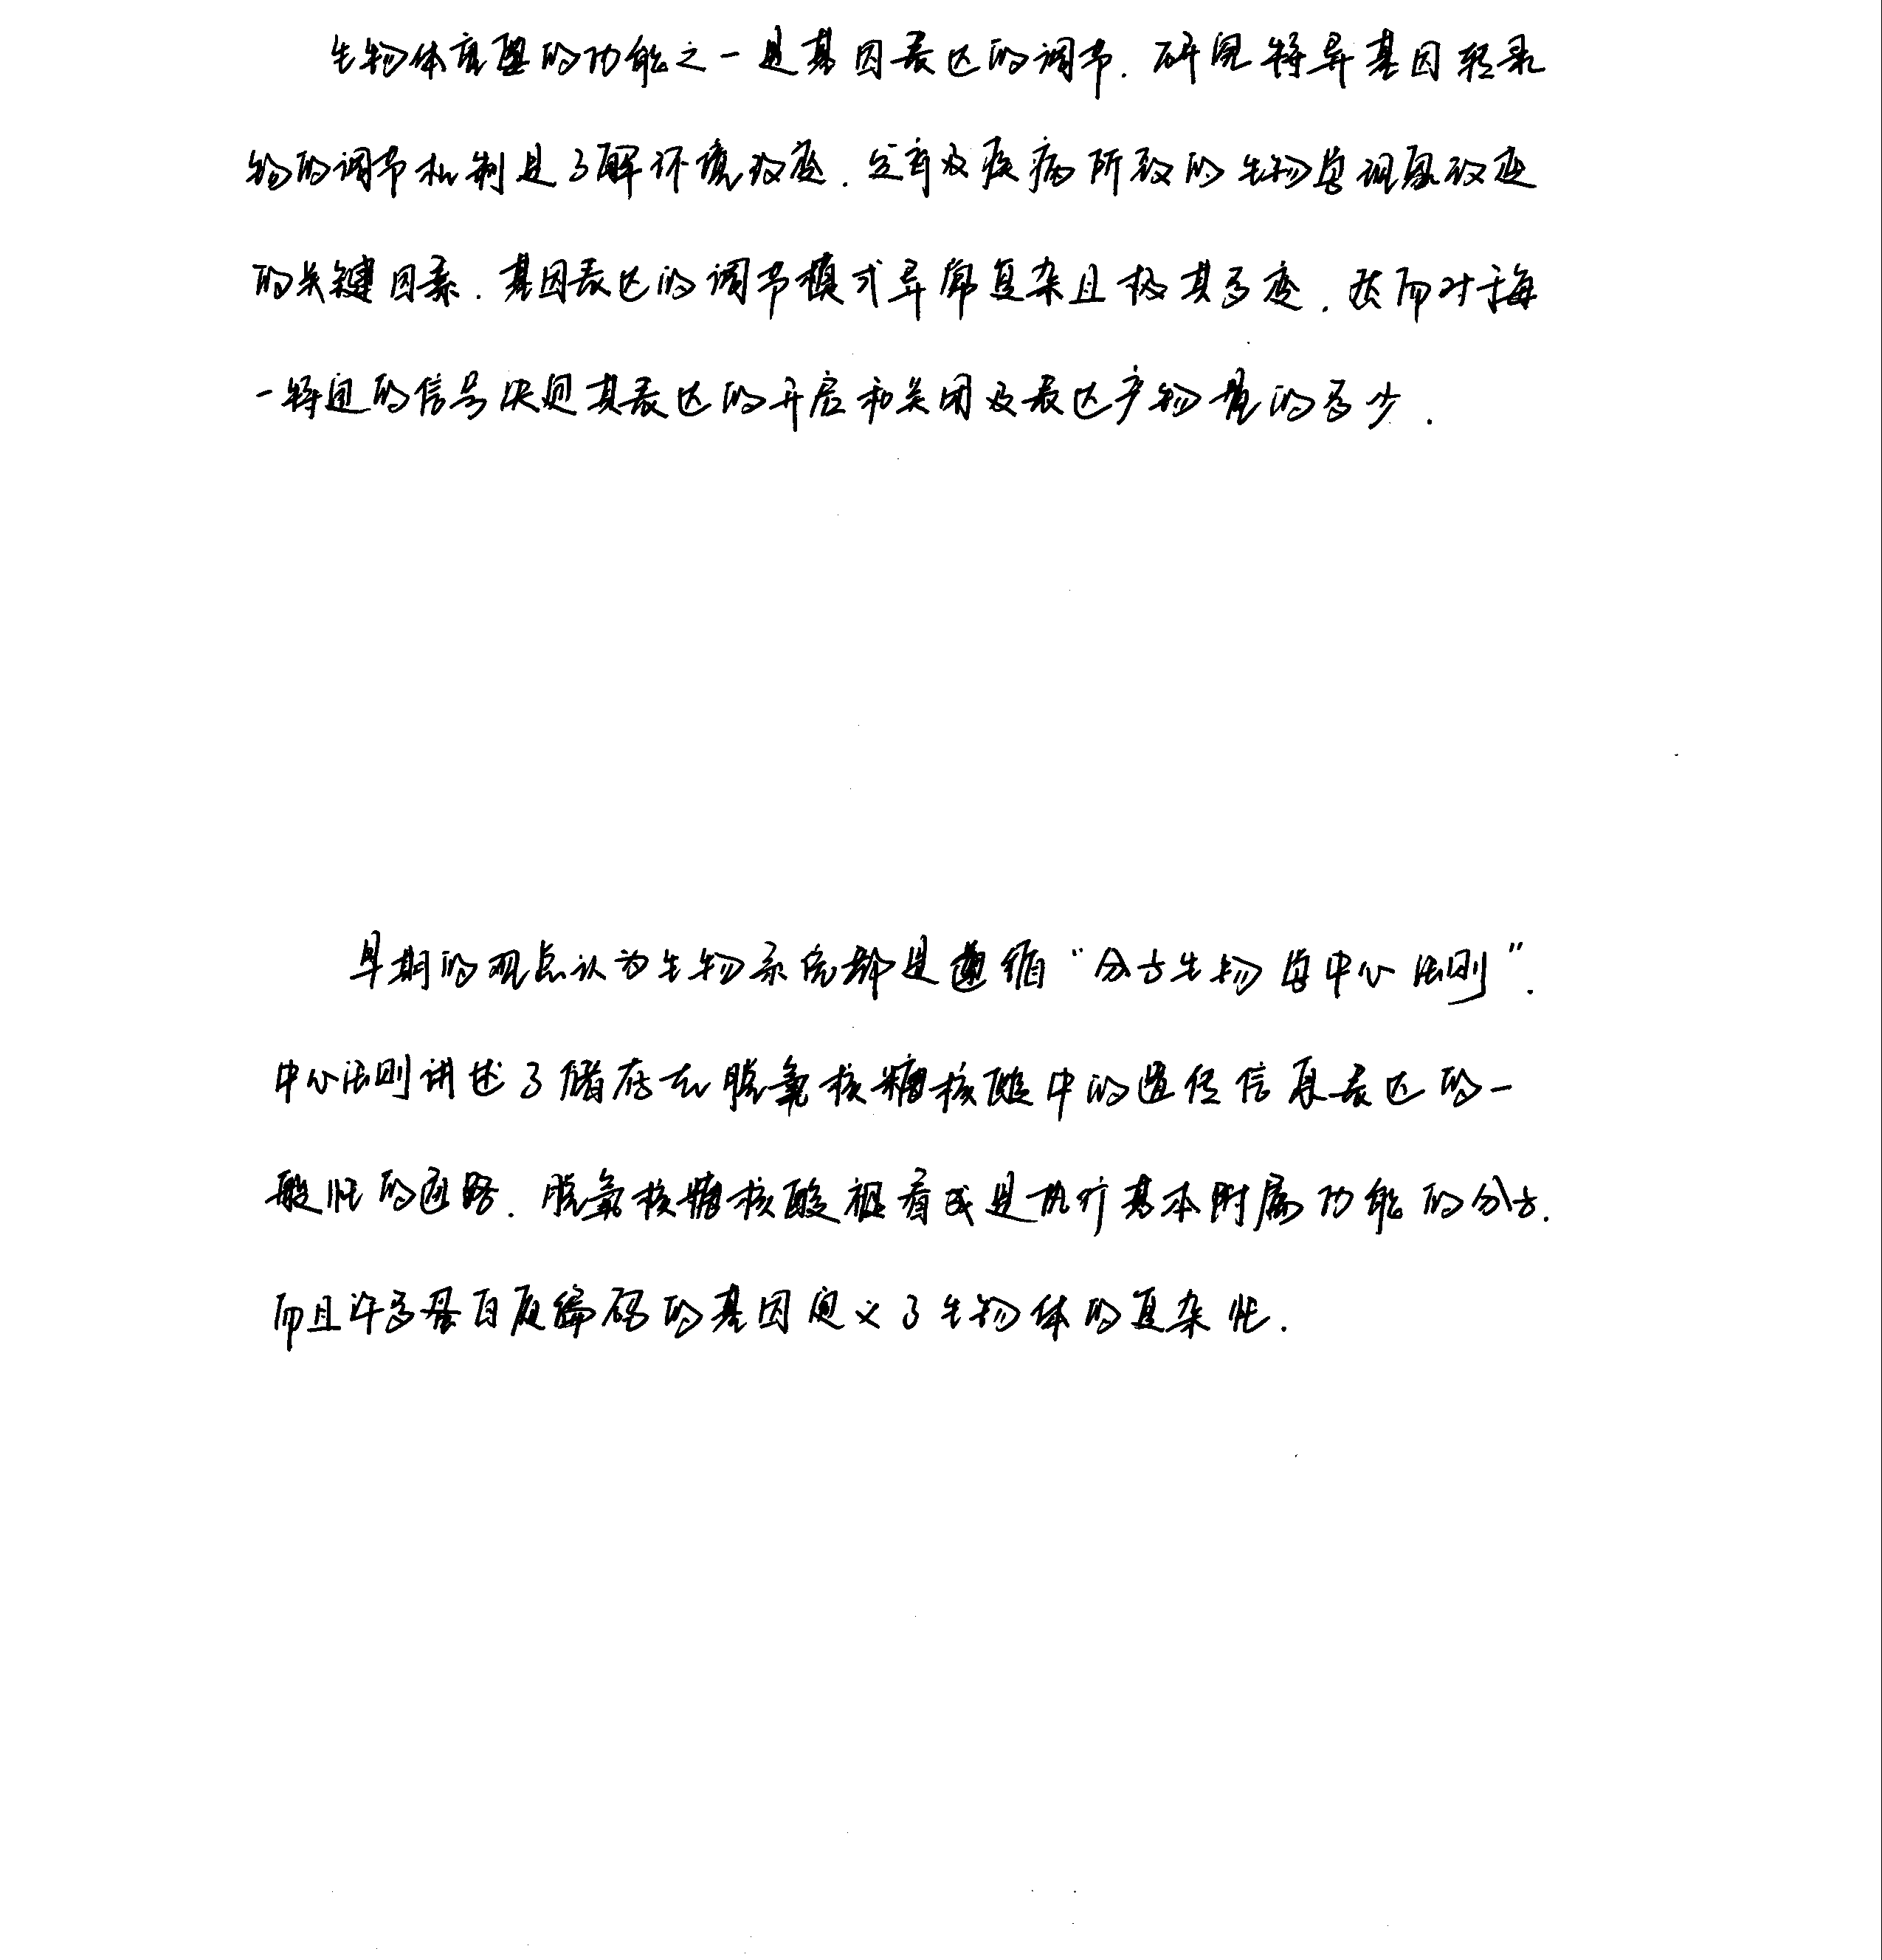 生物体重要的功能之一是基因表达的调节.研究特异基因转录
物的调节机制是了解环境改变.发育及疾病所致的生物学现象改变
的关键因素.基因表达的调节模式异常复杂且极其多变.然而对于每
一特定的信号决定其表达的开启和关闭及表达产物量的多少.
早期的观点认为生物系统都是遵循“分子生物学中心法则”.
中心法则讲述了储存在脱氧核糖核酸中的遗传信息表达的一
般性的通路.脱氧核糖核酸被看成是执行基本附属功能的分子.
而且许多蛋白质编码的基因定义了生物体的复杂性.